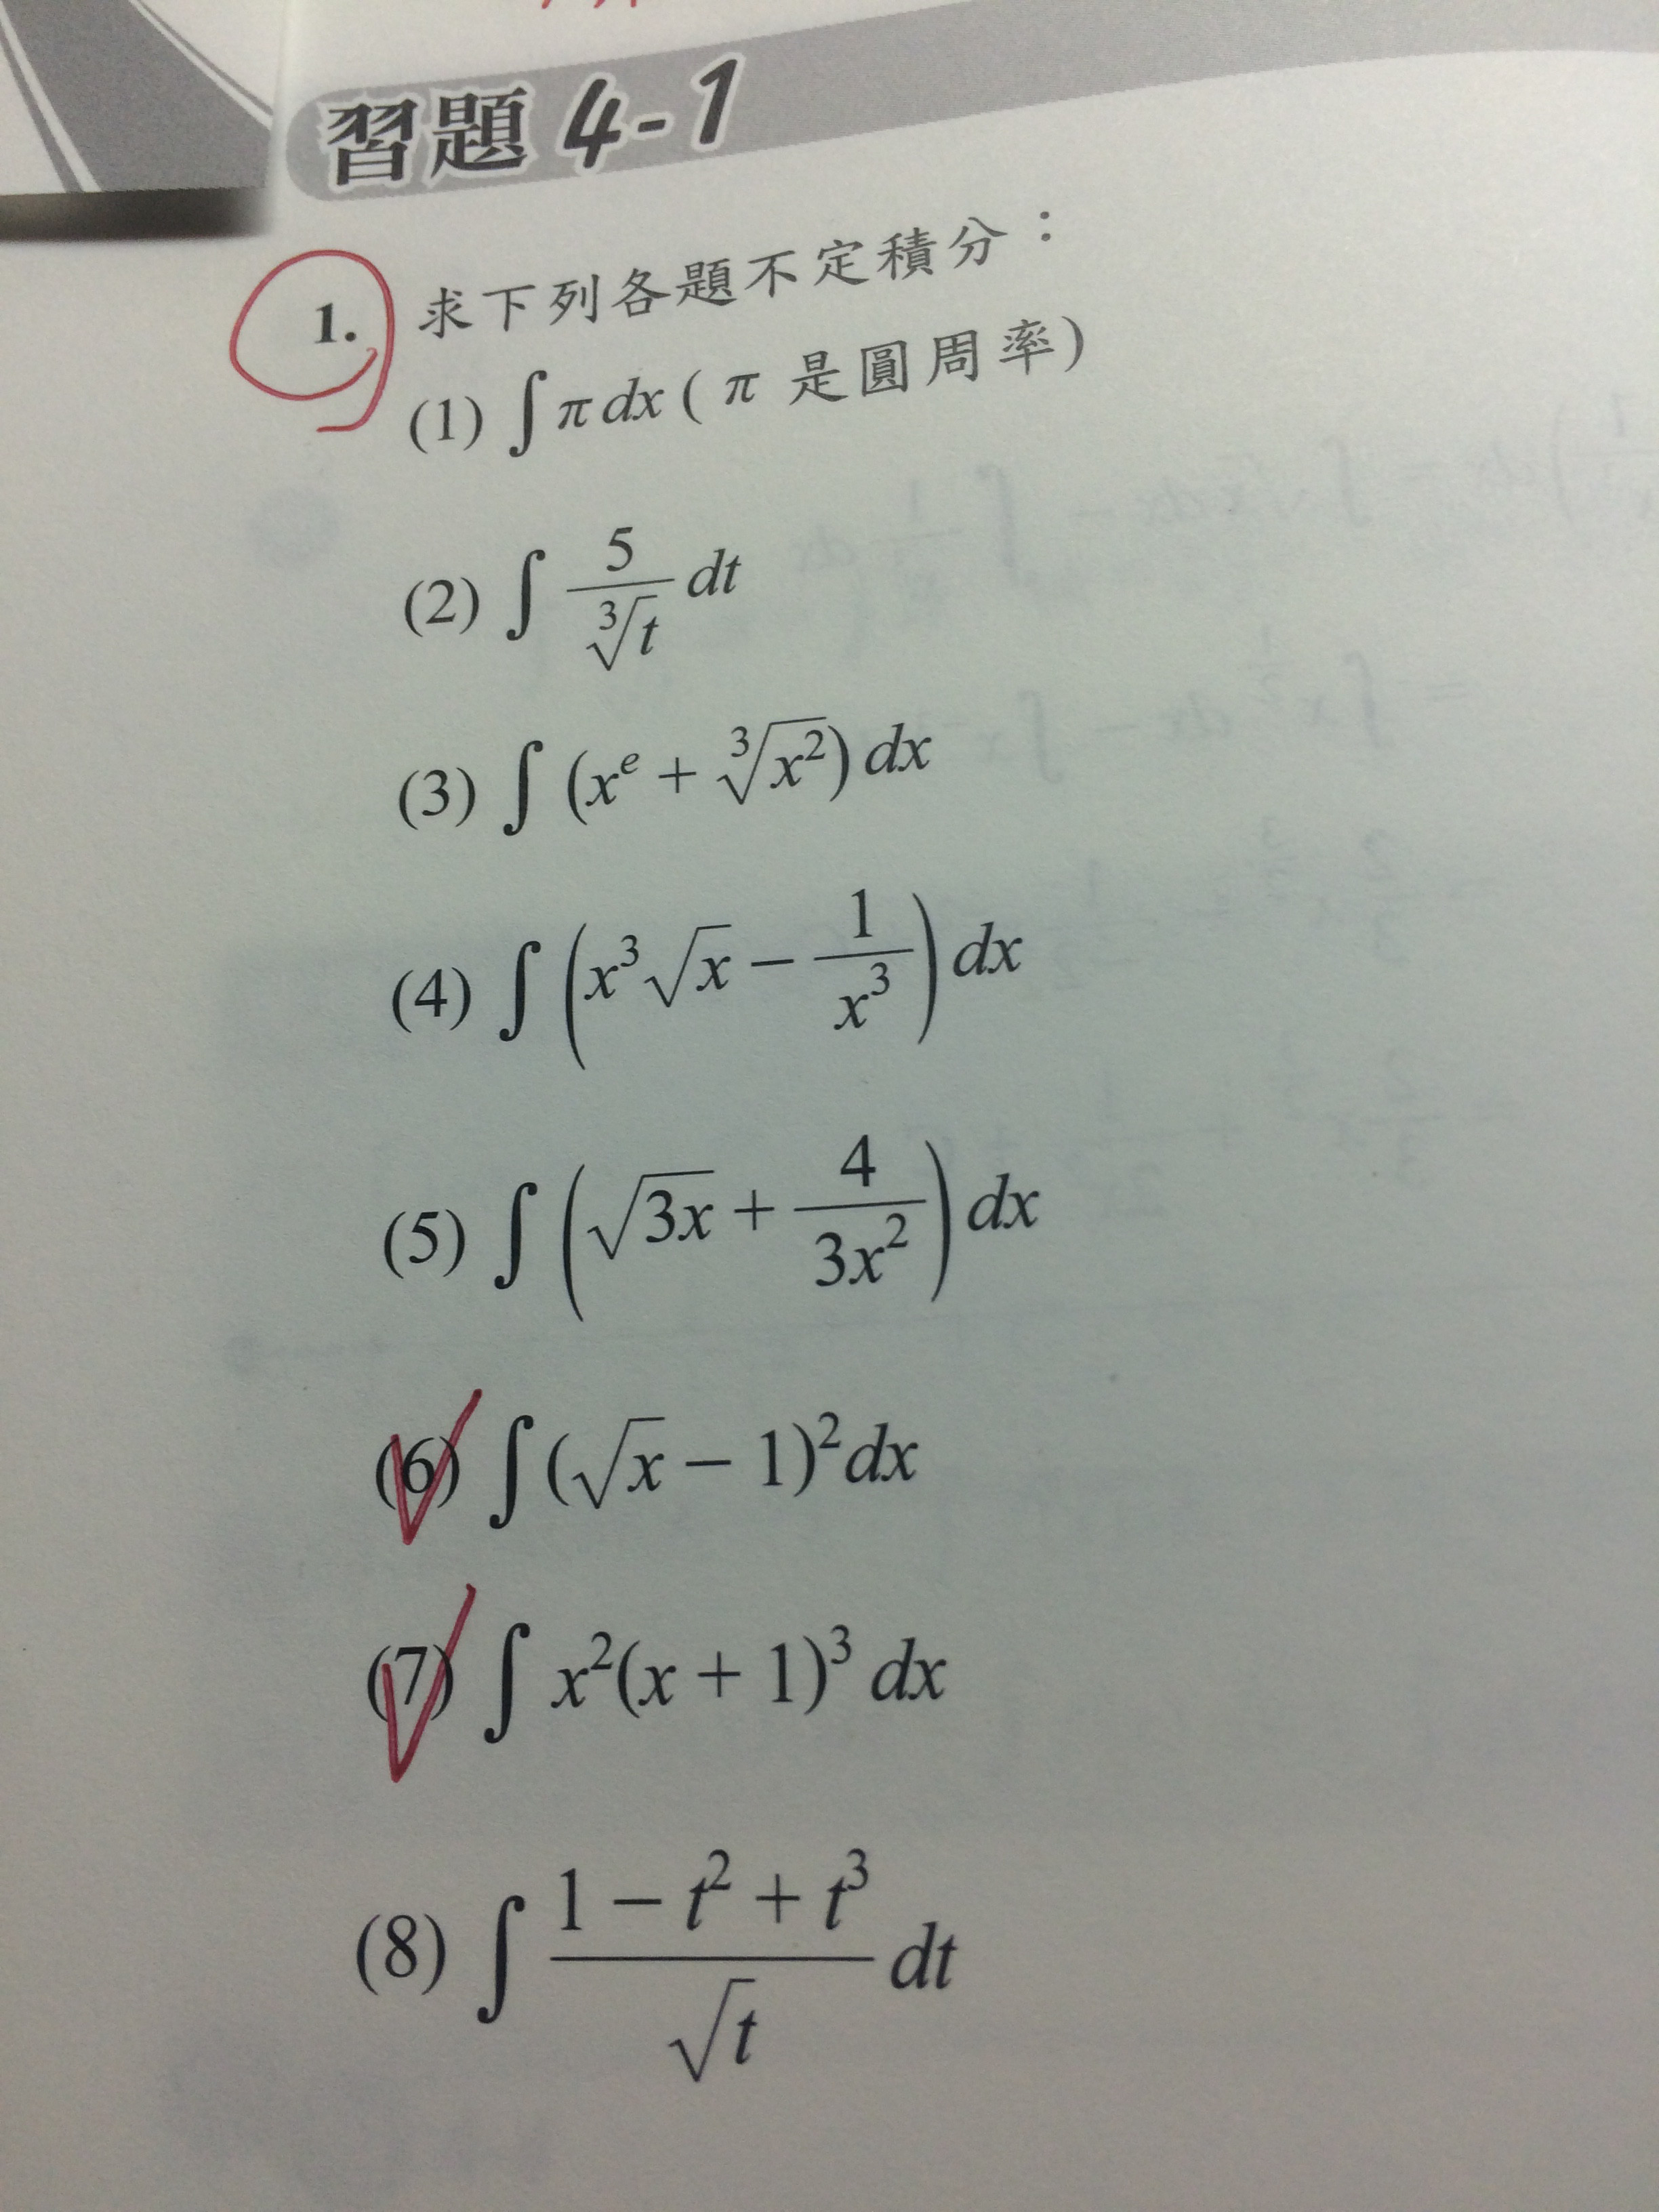 習題 4-1
1. 求下列各題不定積分：
(1) ∫ π dx ( π 是圓周率)
(2) ∫ 5/∛t dt
(3) ∫ (xᵉ + ∛x²) dx
(4) ∫ (x³√x − 1/x³) dx
(5) ∫ (√3x + 4/3x²) dx
(6) ∫ (√x − 1)² dx
(7) ∫ x²(x + 1)³ dx
(8) ∫ (1 − t² + t³)/√t dt